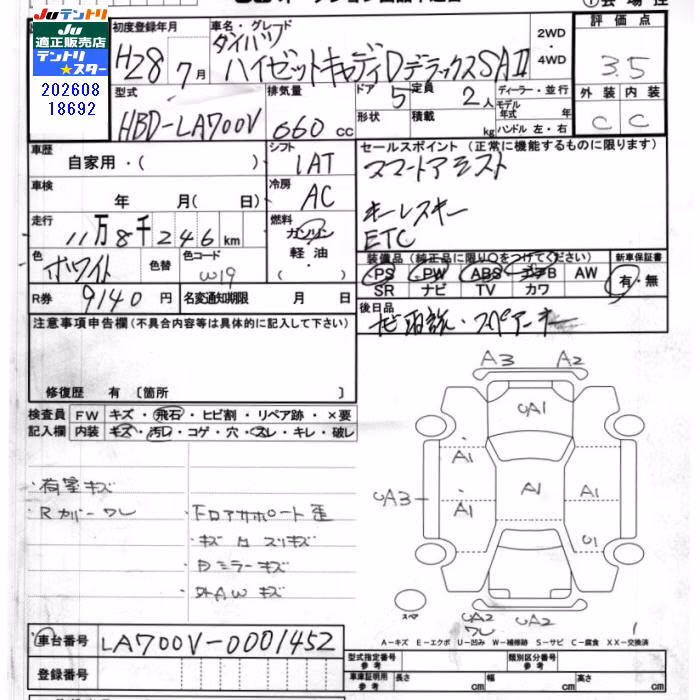 JUテントリ
JU
適正販売店
テントリ
★スター
202608
18692
初度登録年月
H28 7月
車名・グレード
ダイハツ
ハイゼットキャディDデラックスSAⅡ
2WD
・
4WD
評価点
3.5
外装 内装
C C
型式
HBD-LA700V
排気量
660 CC
ドア 5
定員 2人
形状
積載 kg
ディーラー・並行
モデル年式 年
ハンドル 左・右
車歴
自家用・( )
シフト
IAT
車検
年 月( 日)
冷房
AC
走行
11万8千246km
燃料
ガソリン
軽油
( ・ )
色
ホワイト
色替
色コード
W19
R券 9140円
名変通知期限 月 日
セールスポイント(正常に機能するものに限ります)
スマートアシスト
キーレスキー
ETC
装備品(純正品に限り○をつけてください)
PS PW ABS エアB AW
SR ナビ TV カワ
新車保証書
有・無
後日品
取説・スペアキー
注意事項申告欄(不具合内容等は具体的に記入して下さい)
修復歴 有〔箇所 〕
検査員
記入欄
FW キズ・飛石・ヒビ割・リペア跡・×要
内装 キズ・汚レ・コゲ・穴・スレ・キレ・破レ
・荷室キズ
・Rカバーワレ
・ドロアサポート歪
・キズ 凹 スリキズ
・ドミラーキズ
・外AWキズ
A3 A2
UA1
A1
A1
A1
A1
UA3
U1
UA2
ワレ
UA2
スペア
A-キズ E-エクボ U-凹み W-補修跡 S-サビ C-腐食 XX-交換済
車台番号
LA700V-0001452
登録番号
型式指定番号
参考
類別区分番号
参考
車庫証明用
参考
長さ cm
幅 cm
高さ cm